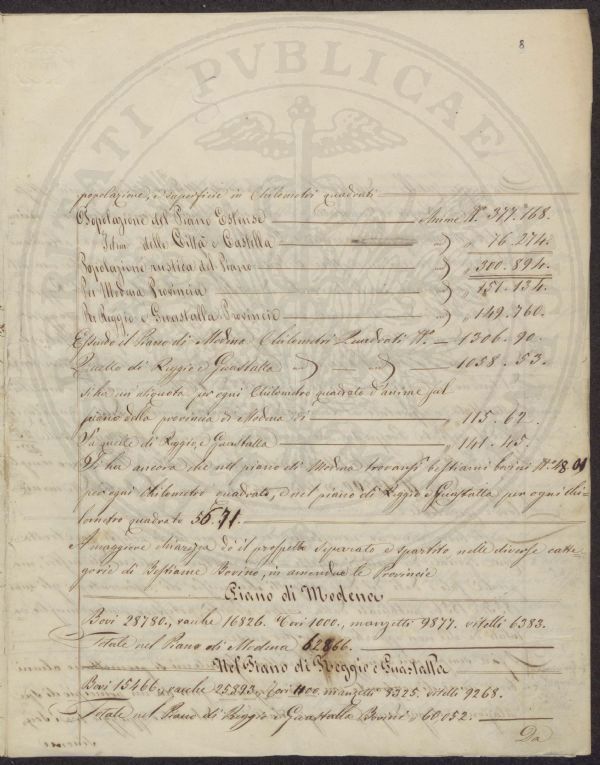 8
popolazione, e superficie in Chilometri quadrati
Popolazione del Piano Estense Anime N.º 377.168.
Idem delle Città e Castella " 76.274.
Popolazione rustica del Piano " 300.894.
Per Modena Provincia " 151.134.
Per Reggio e Guastalla Provincie " 149.760.
Essendo il Piano di Modena Chilometri Quadrati N.º 1306.90.
Quello di Reggio e Guastalla " " 1058.53.
si ha un'aliquota per ogni Chilometro quadrato d'anime sul
piano della provincia di Modena di " 115.62.
Su quelle di Reggio, e Guastalla " 141.45.
Si ha ancora che nel piano di Modena trovansi bestiami bovini N.º 48.01
per ogni Chilometro quadrato, e nel piano di Reggio e Guastalla per ogni Chi-
lometro quadrato 56.71.
A maggiore chiarezza do il prospetto separato e spartito nelle diverse catte-
gorie di Bestiame Bovino, in amendue le Provincie
Piano di Modena
Bovi 28780., vacche 16826. Tori 1000., manzetti 9877. vitelli 6383.
Totale nel Piano di Modena 62866.
Nel Piano di Reggio e Guastalla
Bovi 15466., vacche 25893., tori 1100. manzetti 8325. vitelli 9268.
Totale nel Piano di Reggio e Guastalla Bovini 60052.
Da